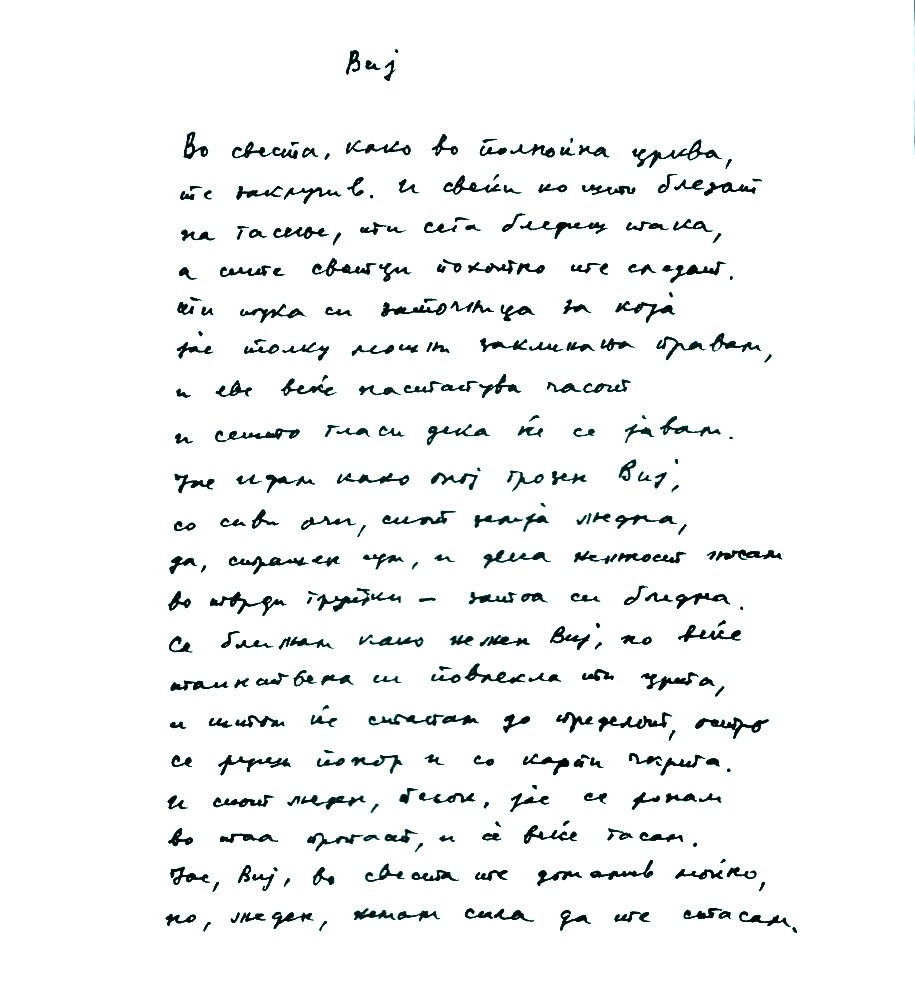 Виј
Во свеста, како во полноќна црква,
те заклучив. И свеќи ко што бледат
на гаснење, ти сета бледиш така,
а сите светци похотно те гледаат.
Ти тука си заточница за која
јас толку мошти заклинања правам,
и еве веќе настапува часот
и сешто гласи дека ќе се јавам.
Јас идам како оној грозен Виј,
со сиви очи, сиот земја ледна,
да, страшен сум, и дека нежност носам
во тврди грутки – затоа си бледна.
Се ближам како нежен Виј, но веќе
таинствена си повлекла ти црта,
и штом ќе стасам до пределот, остро
се понор и со карпи чкрта.
И сиот леден, тежок, јас се ронам
во таа пропаст, и сѐ веќе гасам.
Јас, Виј, во свеста те домамив моќно,
но, леден, немам сила да те стасам.